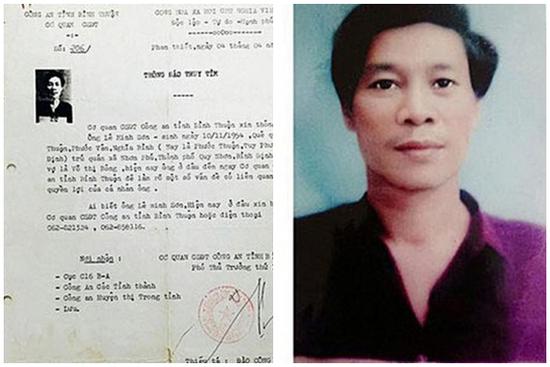 CÔNG AN TỈNH BÌNH THUẬN
CƠ QUAN CSĐT
CỘNG HÒA XÃ HỘI CHỦ NGHĨA VIỆ
Độc lập - Tự do - Hạnh phú
Số: 306/
Phan thiết, ngày 04 tháng 04 n
THÔNG BÁO TRUY TÌM
Cơ quan CSĐT Công an tỉnh Bình Thuận xin thôn
Ông Lê Minh Sơn - sinh ngày 10/11/1954, Quê q
Thuận, Phước Vân, Nghĩa Bình ( Nay là Phước Thuận, Tuy Phư
Định) trú quán xã Nhơn Phú, Thành phố Quy Nhơn, Bình Định
vợ là Võ thị Bông, hiện nay ông ở đâu đến ngay Cơ quan
an tỉnh Bình Thuận để làm rõ một số vấn đề có liên quan
quyền lợi của cá nhân ông.
Ai biết ông Lê minh Sơn, Hiện nay ở đâu xin b
Cơ quan CSĐT Công an tỉnh Bình Thuận hoặc điện thoại
062-821524 , 062-858116.
Nơi nhận :
- Cục C16 B-A
- Công An Các Tỉnh thành
- Công an Huyện thị Trong tỉnh
- Lưu.
CƠ QUAN CSĐT CÔNG AN TỈNH B
Phó Thủ Trưởng thứ
Thiếu tá : ĐÀO CÔNG